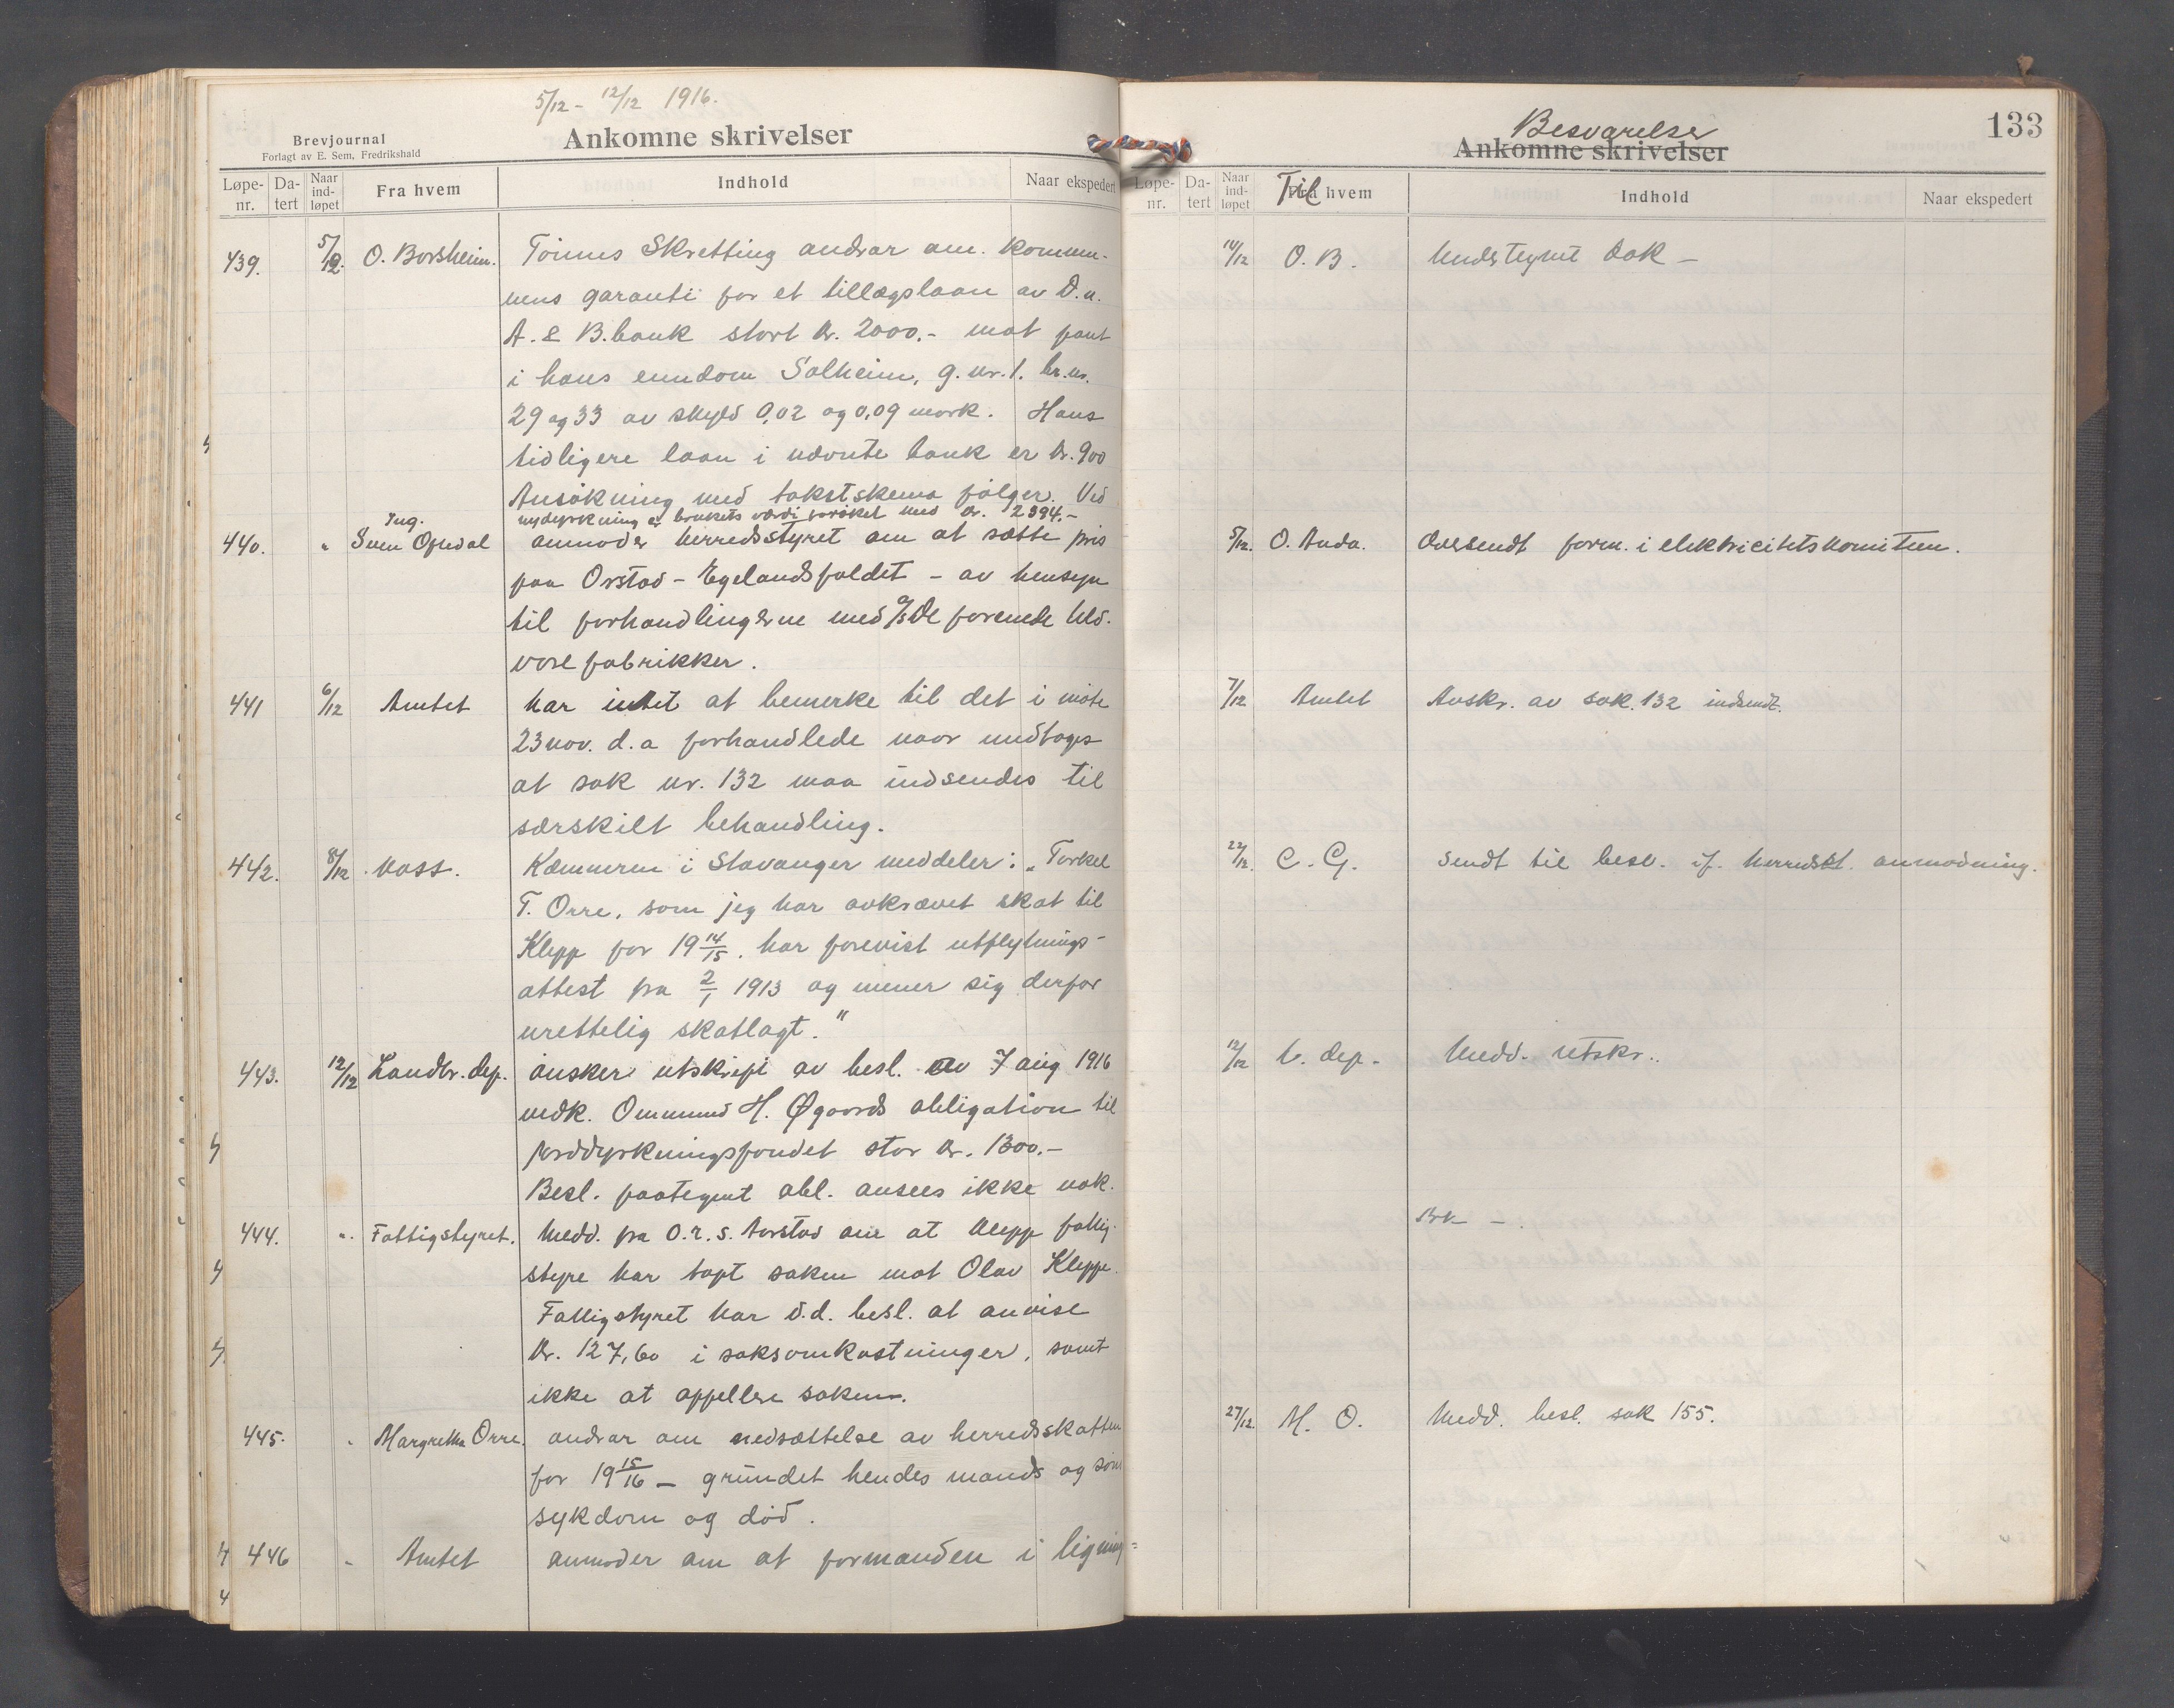 5/12 - 12/12 1916.
Brevjournal
Forlagt av E. Sem, Fredrikshald
Ankomne skrivelser
Løpe-nr. Da-tert Naar ind-løpet Fra hvem Indhold Naar ekspedert
439. 5/12. O. Borsheim. Tönnes Skretting andrar om kommu-
nens garanti for et tillægslaan av D. n.
A. & B. bank stort kr. 2000.- mot pant
i hans eiendom Solheim, g. nr. 1. br. nr.
29 og 33 av skyld 0,02 og 0,09 mark. Hans
tidligere laan i nævnte bank er kr. 900
Ansökning med takstskema fölger. Ved
nydyrkning er brukets værdi foröket med kr. 2394.-
440. " Ing. Sven Opedal anmoder herredsstyret om at sætte pris
paa Orstad - Egelandsfaldet - av hensyn
til forhandlingerne med A/S De forenede Uld-
varefabrikker.
441 6/12 Amtet har intet at bemerke til det i möte
23 nov. d. a forhandlede naar undtages
at sak nr. 132 maa indsendes til
særskilt behandling.
442. 8/12 kass. Kæmneren i Stavanger meddeler: "Torkel
T. Orre, som jeg har avkrævet skat til
Klepp for 19 14/15. har forevist utflytnings-
attest fra 2/1 1913 og mener sig derfor
urettelig skatlagt."
443. 12/12 Landbr. dep. önsker utskript av besl. av 7 aug 1916
vedk. Ommund H. Øgaards obligation til
jorddyrkningsfondet stor kr. 1300.-
Besl. paategnet obl. ansees ikke nok.
444. ". Fattigstyret. Medd. fra O.r.s. Aarstad om at Klepp fattig-
styre har tapt saken mot Olav Kleppe.
Fattigstyret har d.d. besl. at anvise
kr. 127,60 i saksomkostninger, samt
ikke at appellere saken.
445. " Margretha Orre. andrar om nedsættelse av herredsskatten
for 19 15/16 - grundet hendes mands og söns
sykdom og död.
446 " Amtet anmoder om at formanden i ligning-
133
Besvarelser
Ankomne skrivelser
Løpe-nr. Da-tert Naar ind-løpet Til Fra hvem Indhold Naar ekspedert
14/12 O. B. Undertegnet dok -
5/12. O. Anda. Oversendt form. i elektricitetskomiteen.
7/12 Amtet Avskr. av sak. 132 indsendt.
22/12. C. G. Sendt til besl. if. herredsst. anmodning.
12/12 L. dep. Medd. utskr..
27/12. M. O. Medd. besl. sak 155.